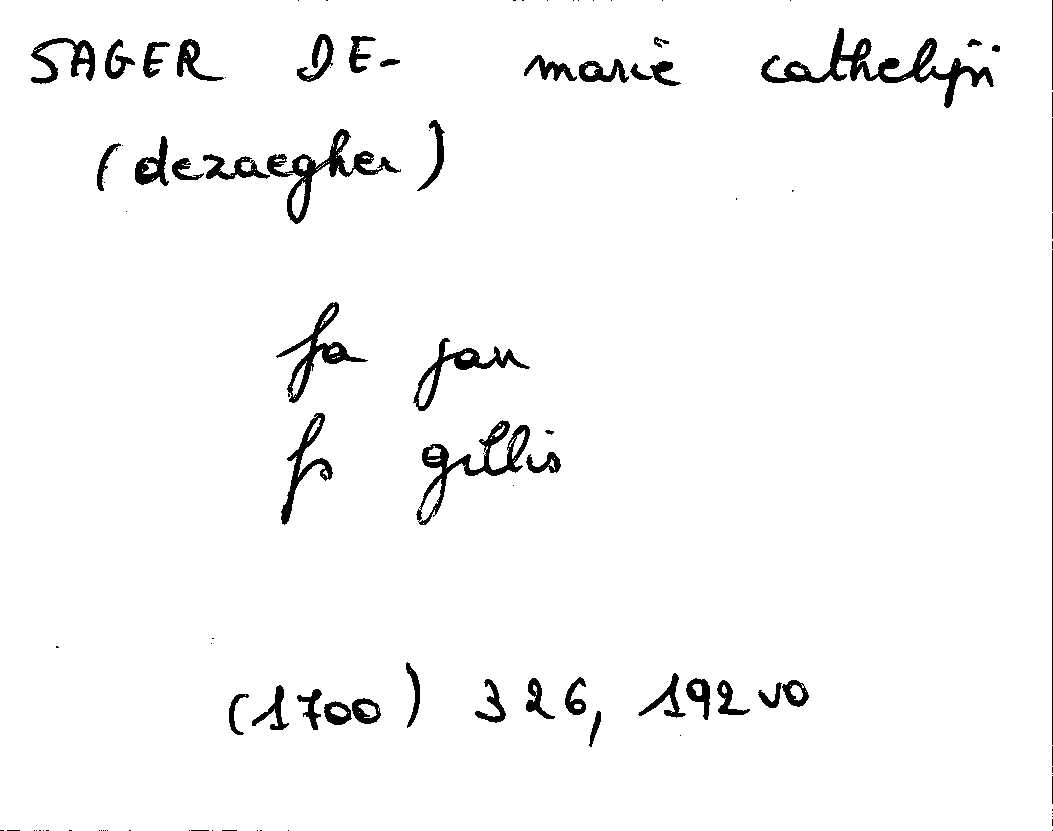 SAGER DE- marië cathelijn
(dezaegher)
fa jan
fs gillis
(1700) 326, 192 vo